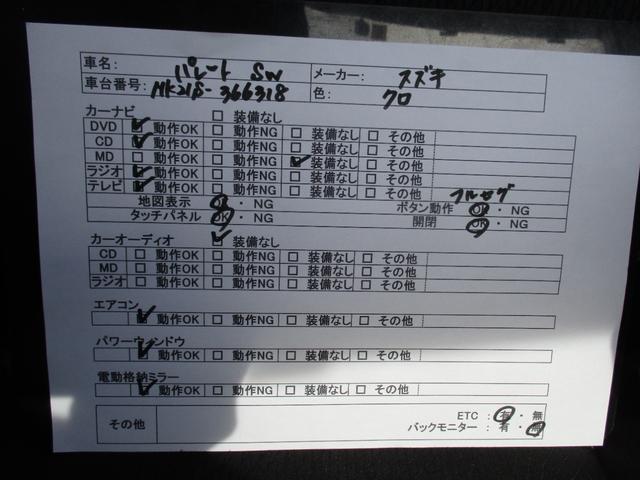 車名: パレート SW メーカー: スズキ
車台番号: MK21S-366318 色: クロ
カーナビ □ 装備なし
DVD ☑ 動作OK □ 動作NG □ 装備なし □ その他
CD ☑ 動作OK □ 動作NG □ 装備なし □ その他
MD □ 動作OK □ 動作NG ☑ 装備なし □ その他
ラジオ ☑ 動作OK □ 動作NG □ 装備なし □ その他
テレビ ☑ 動作OK □ 動作NG □ 装備なし □ その他 フルセグ
地図表示 OK ・ NG ボタン動作 OK ・ NG
タッチパネル OK ・ NG 開閉 OK ・ NG
カーオーディオ ☑ 装備なし
CD □ 動作OK □ 動作NG □ 装備なし □ その他
MD □ 動作OK □ 動作NG □ 装備なし □ その他
ラジオ □ 動作OK □ 動作NG □ 装備なし □ その他
エアコン
☑ 動作OK □ 動作NG □ 装備なし □ その他
パワーウィンドウ
☑ 動作OK □ 動作NG □ 装備なし □ その他
電動格納ミラー
☑ 動作OK □ 動作NG □ 装備なし □ その他
その他 ETC : 有 ・ 無
バックモニター : 有 ・ 無